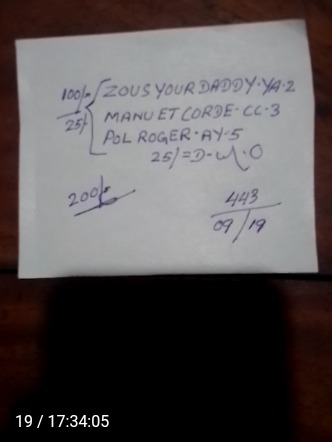 100/- ZOUS YOUR DADDY·YA·2
25/- MANU ET CORDE·CC·3
POL ROGER·AY·5
25/=D-W·O
200/-
443
09/19
19 / 17:34:05